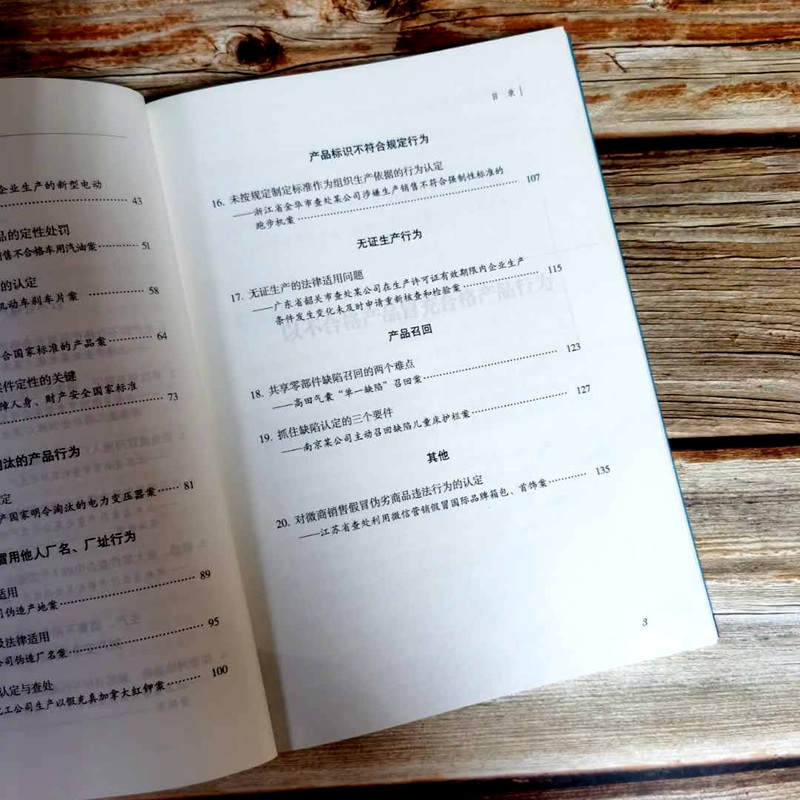 企业生产的新型电动
43
品的定性处罚
售不合格车用汽油案 51
的认定
机动车刹车片案 58
合国家标准的产品案 64
案件定性的关键
障人身、财产安全国家标准
73
淘汰的产品行为
定
产国家明令淘汰的电力变压器案 81
冒用他人厂名、厂址行为
适用
司伪造产地案 89
及法律适用
公司伪造厂名案 95
认定与查处
化工公司生产以假充真加拿大红钾案 100
目 录
产品标识不符合规定行为
16. 未按规定制定标准作为组织生产依据的行为认定
——浙江省金华市查处某公司涉嫌生产销售不符合强制性标准的
跑步机案 107
无证生产行为
17. 无证生产的法律适用问题
——广东省韶关市查处某公司在生产许可证有效期限内企业生产
条件发生变化未及时申请重新核查和检验案 115
产品召回
18. 共享零部件缺陷召回的两个难点
——高田气囊“单一缺陷”召回案 123
19. 抓住缺陷认定的三个要件
——南京某公司主动召回缺陷儿童床护栏案 127
其他
20. 对微商销售假冒伪劣商品违法行为的认定
——江苏省查处利用微信营销假冒国际品牌箱包、首饰案 135
3